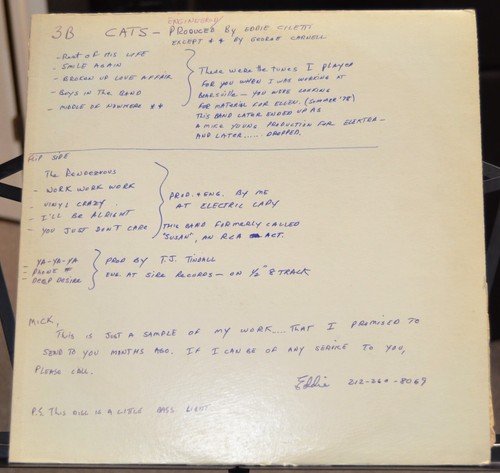 ENGINEERED /
3B CATS - PRODUCED BY EDDIE CILETTI
EXCEPT ** BY GEORGE CARNELL
- REST OF HIS LIFE
- SMILE AGAIN
- BROKEN UP LOVE AFFAIR
- BOYS IN THE BAND
- MIDDLE OF NOWHERE **
THESE WERE THE TUNES I PLAYED
FOR YOU WHEN I WAS WORKING AT
BEARSVILLE - YOU WERE LOOKING
FOR MATERIAL FOR ELLEN. (SUMMER '78)
THIS BAND LATER ENDED UP AS
A MIKE YOUNG PRODUCTION FOR ELEKTRA -
AND LATER..... DROPPED.
FLIP SIDE
THE RENDEZVOUS
- WORK WORK WORK
- VINYS CRAZY
- I'LL BE ALRIGHT
- YOU JUST DON'T CARE
PROD. & ENG. BY ME
AT ELECTRIC LADY
THIS BAND FORMERLY CALLED
"SUSAN", AN RCA ACT.
- YA-YA-YA
- PHONE #
- DEEP DESIRE
PROD BY T.J. TINDALL
ENG. AT SIRE RECORDS - ON 1/2" 8 TRACK
MICK,
THIS IS JUST A SAMPLE OF MY WORK.... THAT I PROMISED TO
SEND TO YOU MONTHS AGO. IF I CAN BE OF ANY SERVICE TO YOU,
PLEASE CALL.
Eddie 212-260-8069
P.S THIS DISC IS A LITTLE BASS LIGHT